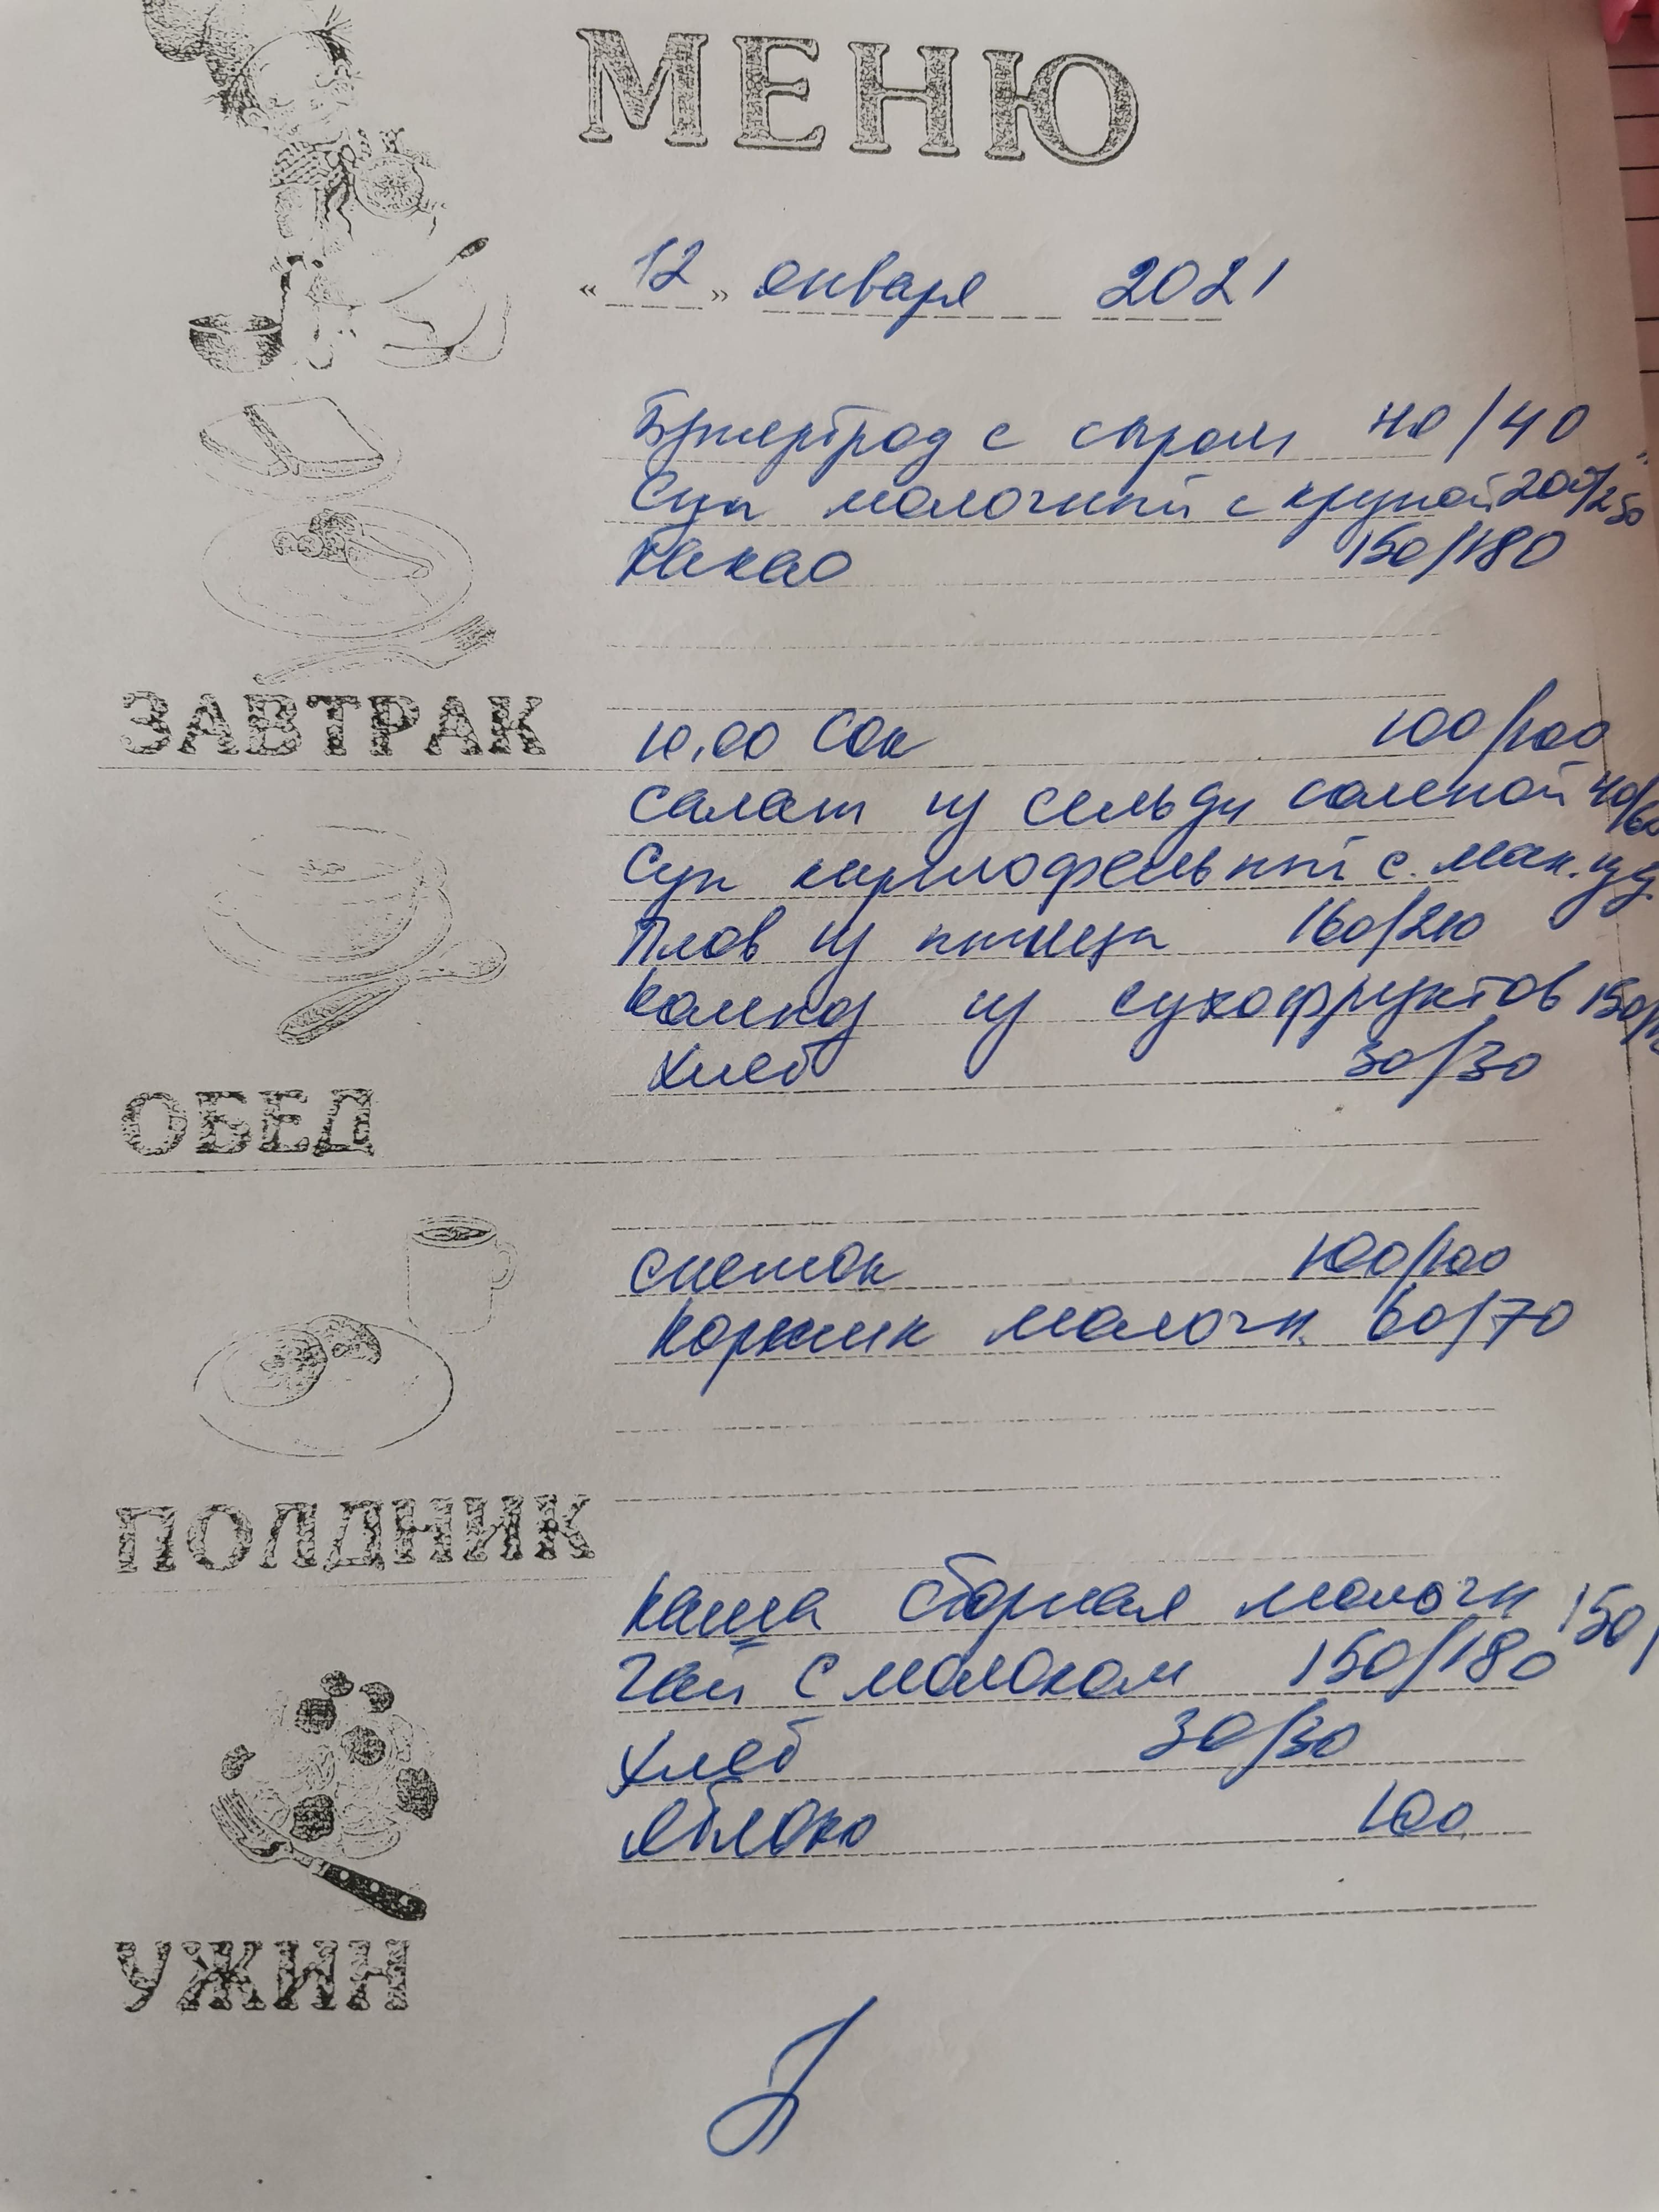 МЕНЮ
« 12 » января 2021
Бутерброд с сыром 40/40
Суп молочный с крупой 200/250
Какао 150/180
ЗАВТРАК
10.00 Сок 100/100
Салат из сельди соленой 40/60
Суп картофельный с. мак. изд.
Плов из птицы 160/210
Компот из сухофруктов 150/
Хлеб 30/30
ОБЕД
Снежок 100/100
Коржик молочн. 60/70
ПОЛДНИК
Каша сборная молочн 150/
Чай с молоком 150/180
Хлеб 30/30
Яблоко 100
УЖИН